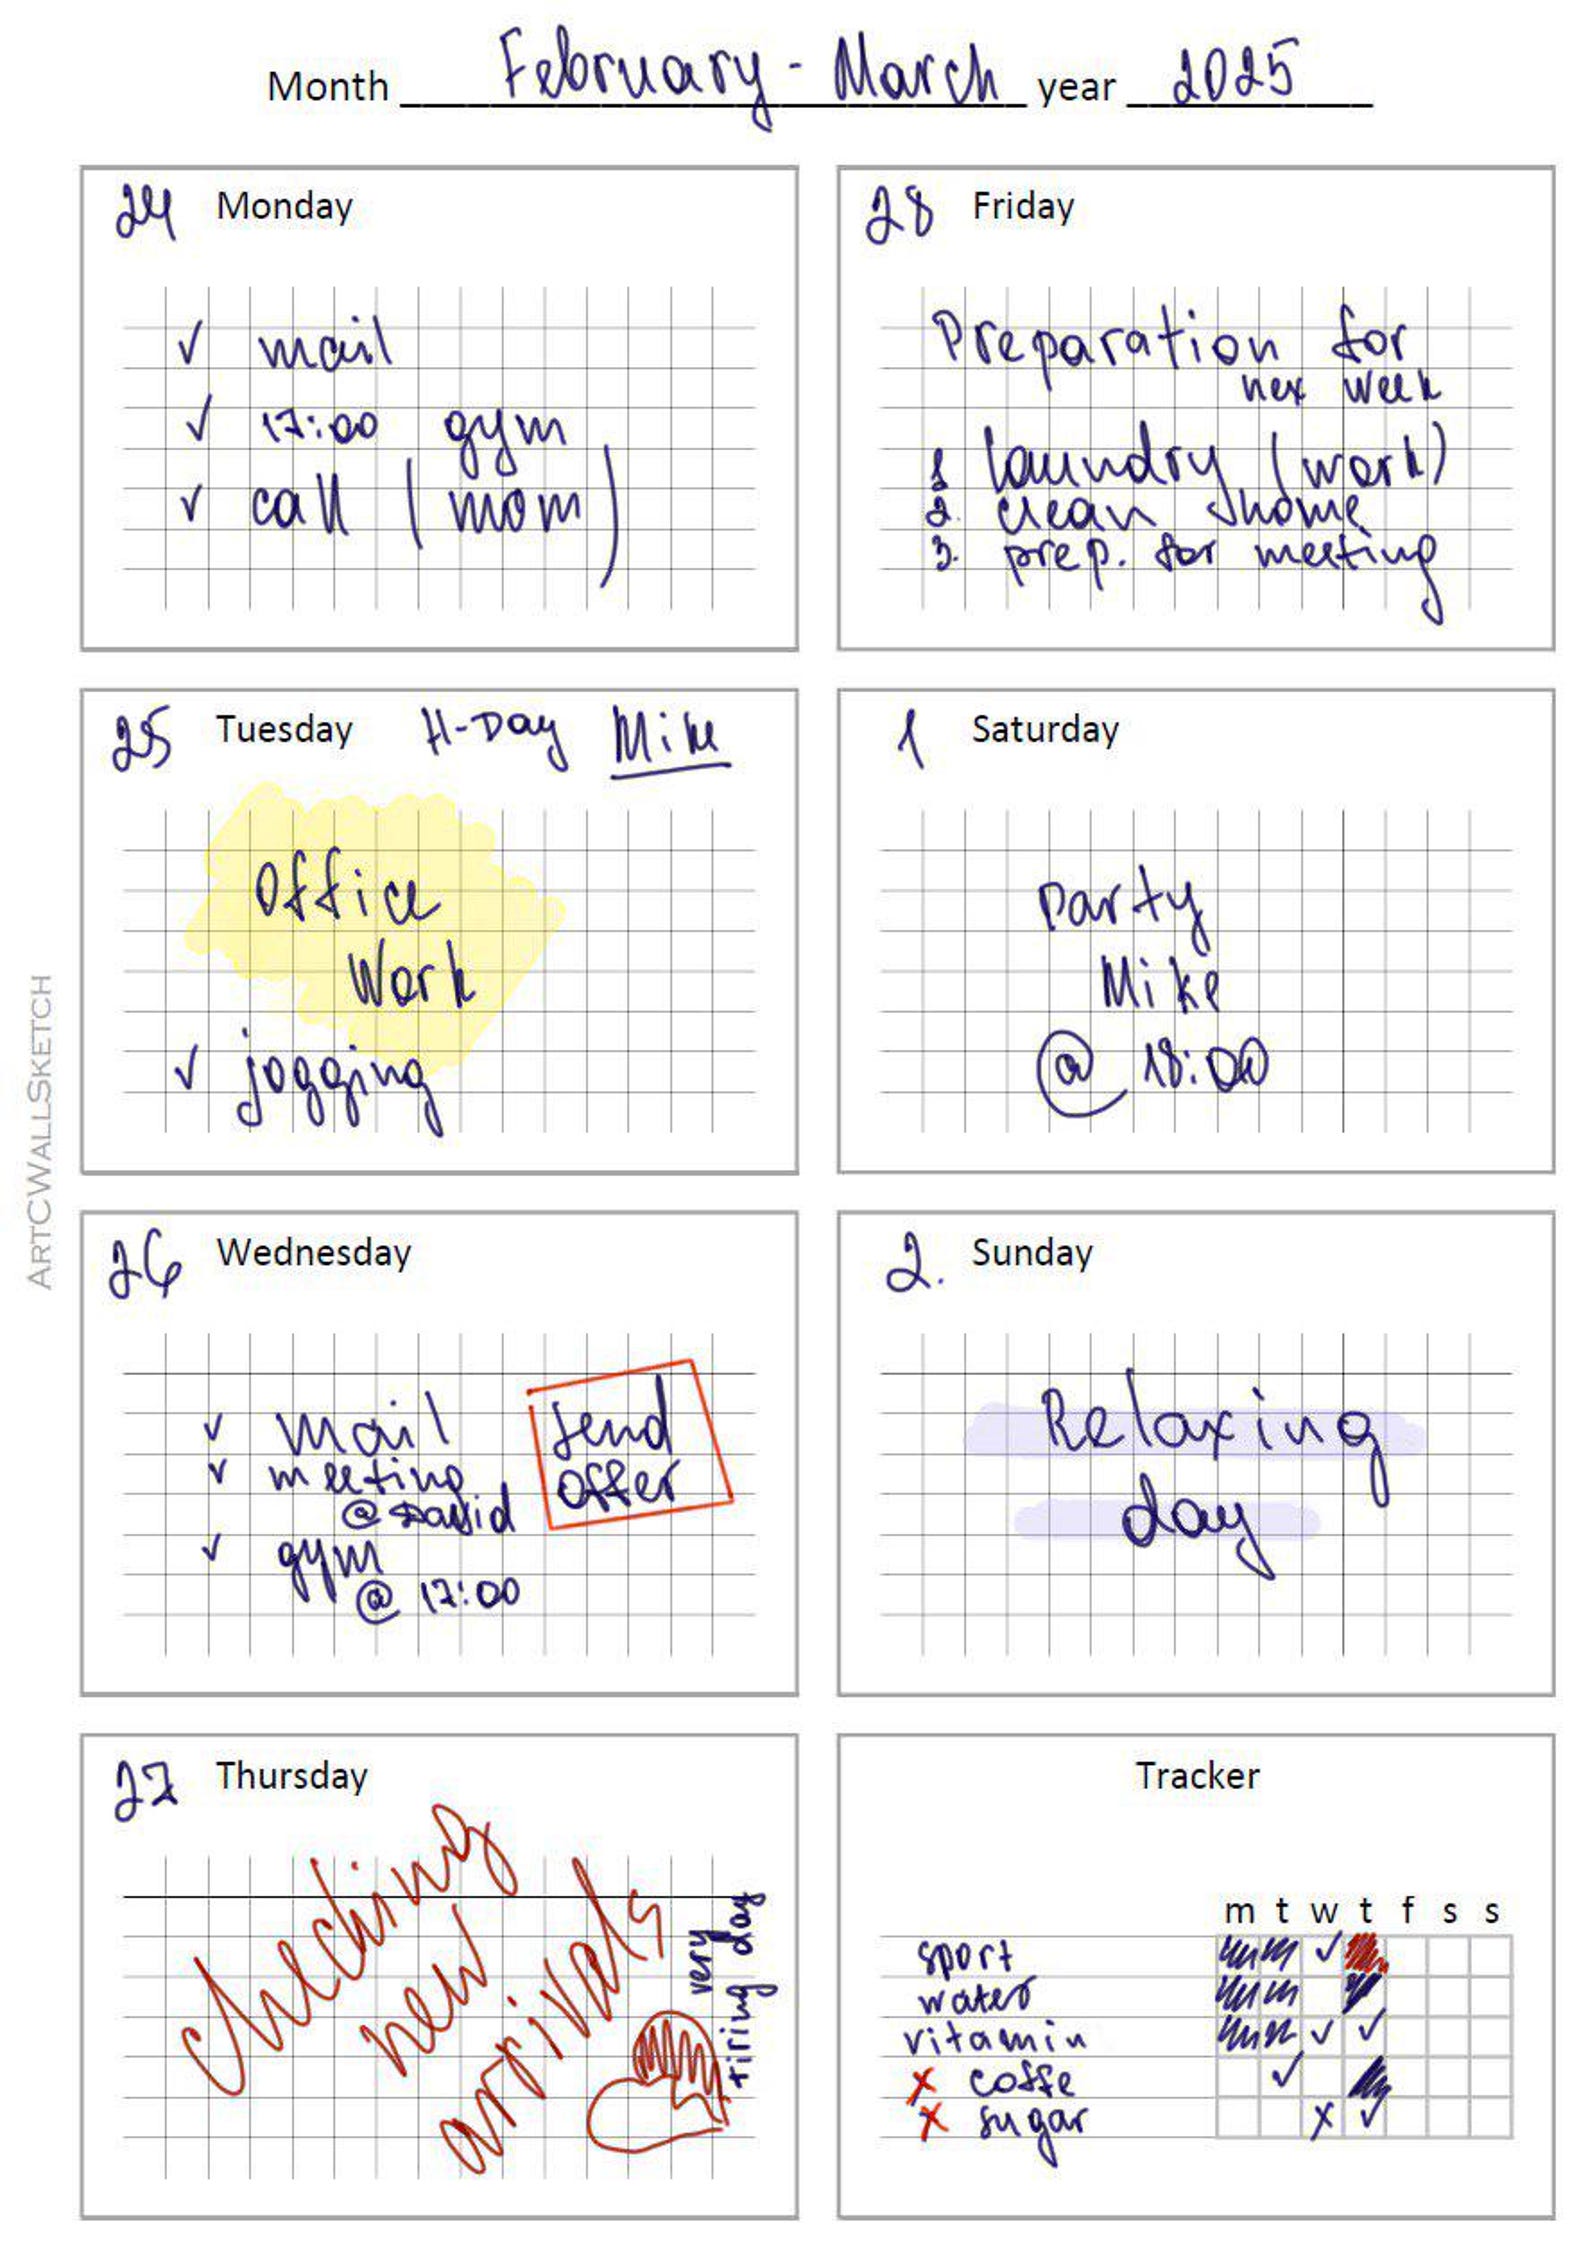 Month February - March year 2025
24 Monday
✓ mail
✓ 17:00 gym
✓ call (mom)
25 Tuesday H-Day Mike
Office
Work
✓ jogging
26 Wednesday
✓ mail
✓ meeting
@ David
✓ gym
@ 17:00
Send
offer
27 Thursday
Checking
new
arrivals
very
tiring day
28 Friday
Preparation for
nex week
1 laundry (work)
2. clean home
3. prep. for meeting
1 Saturday
Party
Mike
@ 18:00
2. Sunday
Relaxing
day
Tracker
m t w t f s s
sport ✓
water
vitamin ✓ ✓
x coffe ✓
x sugar x ✓
ArtCWallSketch